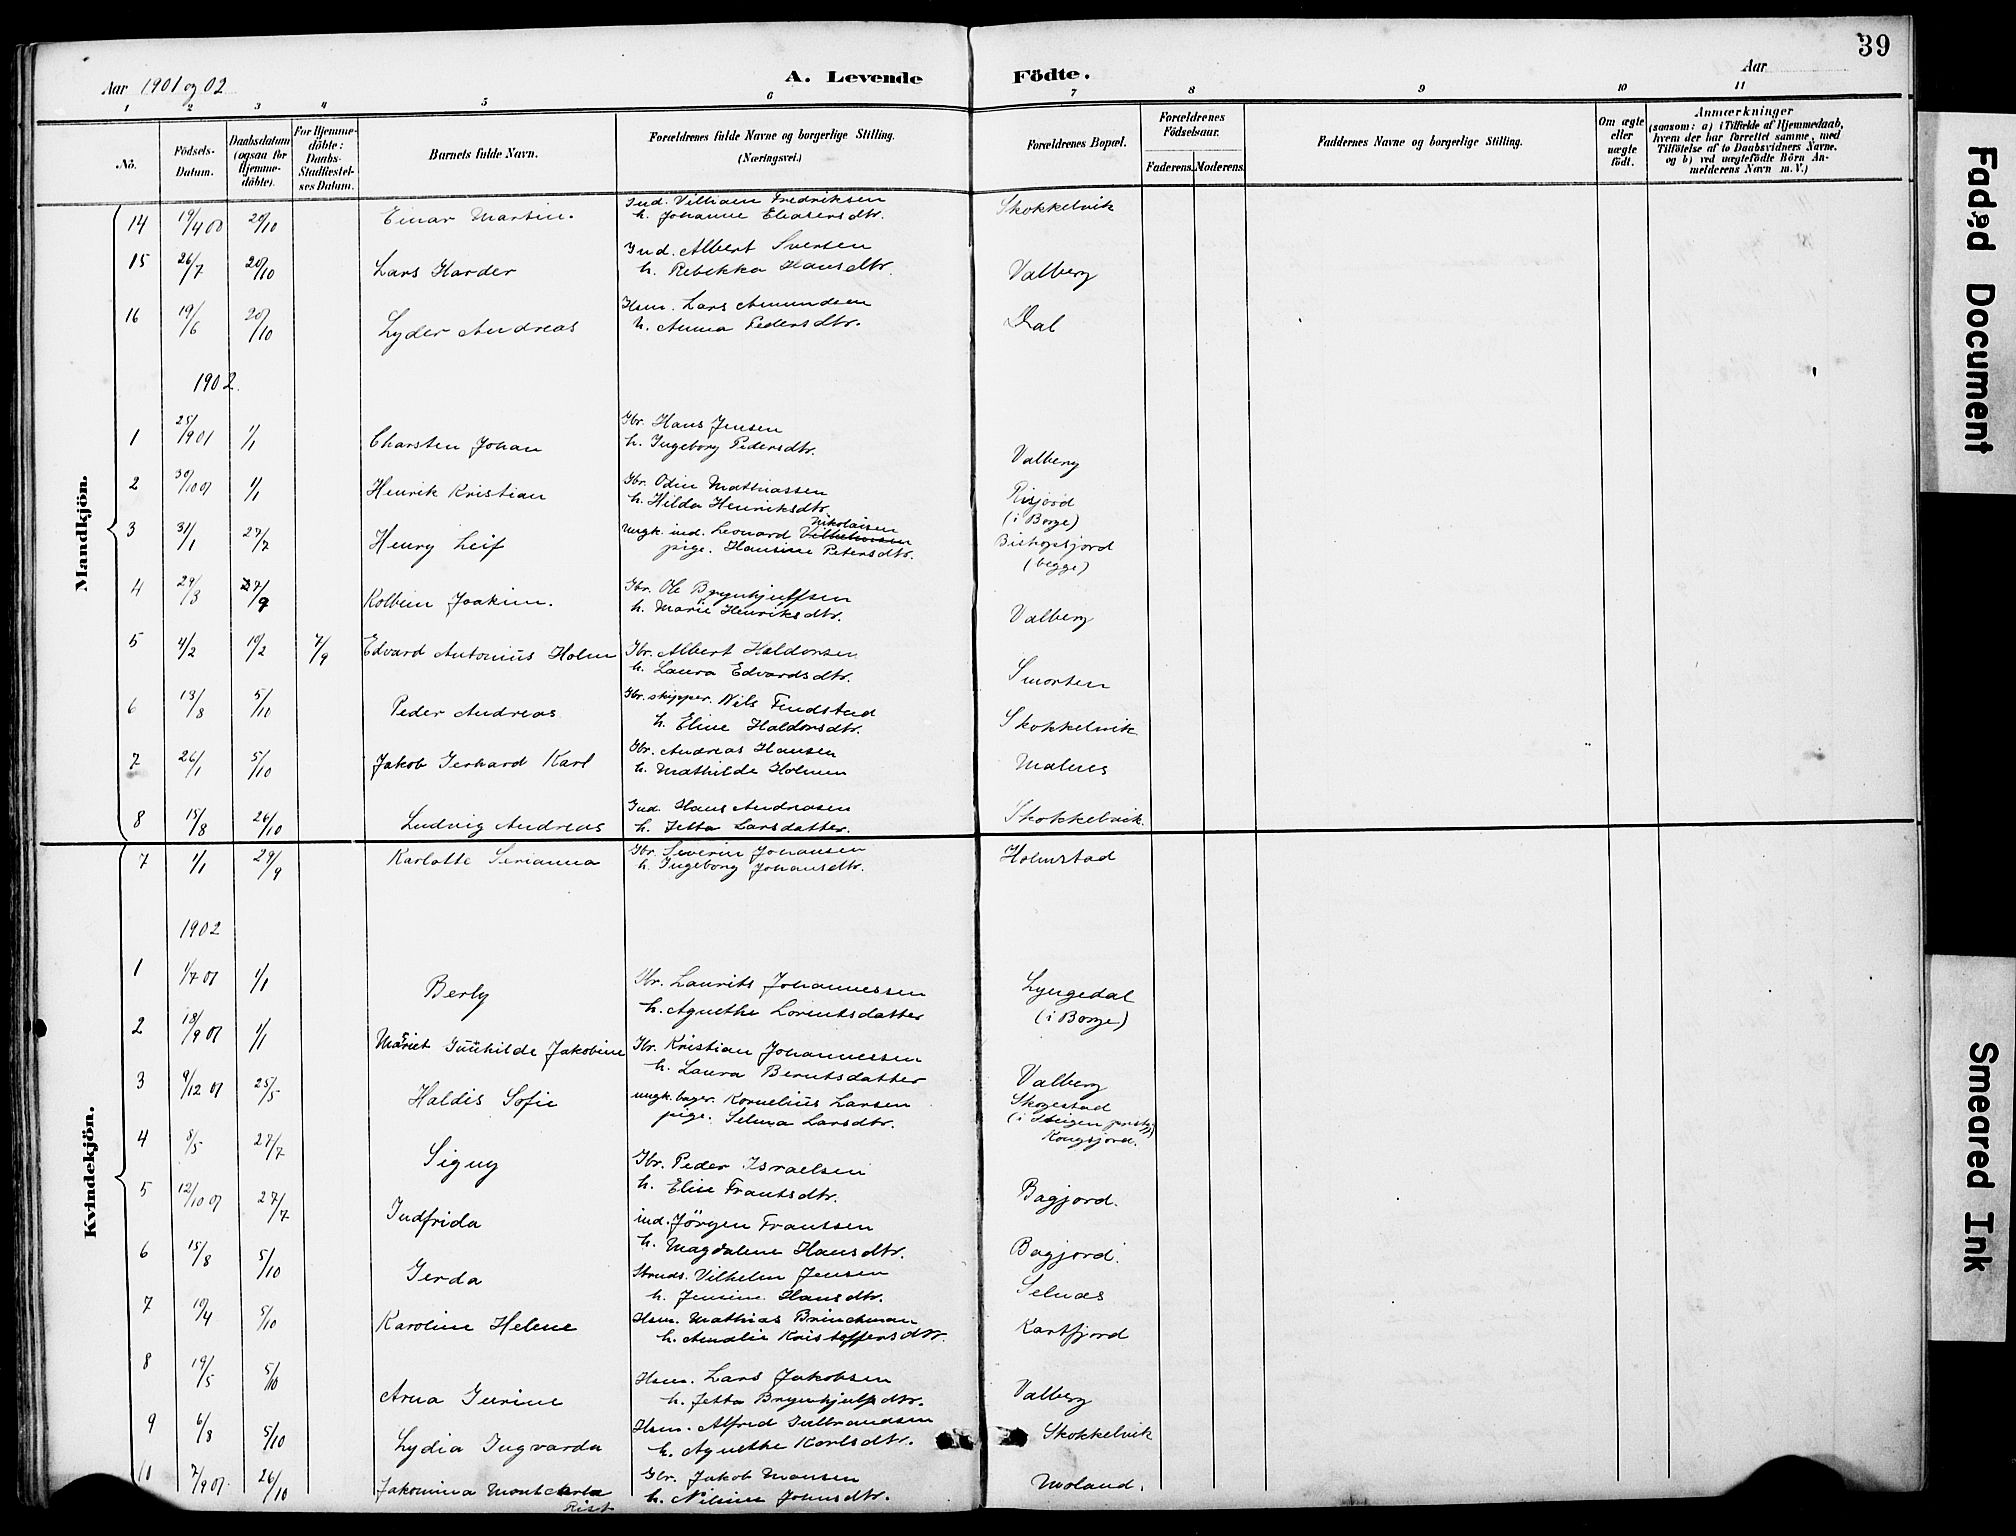 39
Aar 1901 og 02
A. Levende Födte.
Aar
1 2 3 4 5 6 7 8 9 10 11
No.
Födsels-Datum.
Daabsdatum (ogsaa for Hjemme-döbte).
For Hjemme-döbte: Daabs-Stadfæstel-ses Datum.
Barnets fulde Navn.
Forældrenes fulde Navne og borgerlige Stilling. (Næringsvei.)
Forældrenes Bopæl.
Forældrenes Födselsaar.
Faderens. Moderens.
Faddernes Navne og borgerlige Stilling.
Om ægte eller uægte födt.
Anmærkninger (saasom: a) i Tilfælde af Hjemmedaab, hvem der har forrettet samme, med Tilföielse af to Daabsvidners Navne. og b) ved uægtefödte Börn Anmelderens Navn m. V.)
Mandkjön.
14 19/4 00 20/10 Einar Martin. Ind. Villiam Fredriksen Skokkelvik
h. Johanne Eliasersdtr.
15 26/7 20/10 Lars Harder Ind. Albert Sversen Valberg
h. Rebekka Hansdtr.
16 19/6 20/10 Lyder Andreas Hsm. Lars Amundsen Dal
h. Anna Pedersdtr.
1902.
1 25/9 01 1/1 Charsten Johan Gbr. Hans Jensen Valberg
h. Ingeborg Pedersdtr.
2 30/10 01 1/1 Henrik Kristian Gbr. Odin Mathiassen Risjord
h. Hilda Henriksdtr. (i Borge)
3 31/1 27/7 Henry Leif ungk. ind. Leonard Nikolaisen Bishopsjord
pige. Hansine Petersdtr. (begge)
4 29/3 27/9 Kolbein Joakim. Gbr. Ole Brynhjulfsen Valberg
h. Marie Henriksdtr.
5 4/2 19/2 7/9 Edvard Antonius Holm Gbr. Albert Haldorsen Smorten
h. Laura Edvardsdtr.
6 13/8 5/10 Peder Andreas Gbr. skipper. Nils Finstad Skokkelvik
h. Eline Haldorsdtr.
7 26/1 5/10 Jakob Gerhard Karl Gbr. Andreas Hansen Malnes
h. Mathilde Holmen
8 15/8 26/10 Ludvig Andreas Ind. Hans Andreasen Skokkelvik.
h. Jetta Larsdatter.
Kvindekjön.
7 1/1 29/9 Karlotte Serianna Gbr. Severin Johansen Holmstad
h. Ingeborg Johansdtr.
1902
1 1/7 01 1/1 Berly Gbr. Laurits Johannessen Lyngedal
h. Agnethe Lorentsdatter (i Borge)
2 18/9 01 1/1 Mariet Gunhilde Jakobine Gbr. Kristian Johannessen Valberg
h. Laura Berntsdatter
3 9/12 01 25/5 Haldis Sofie ungk. bager. Kornelius Larsen Skogestad
pige. Selma Larsdtr. (i Steigen prestgj) Kongsjord.
4 5/5 27/7 Signy Gbr. Peder Israelsen Bagjord.
h. Elise Frantsdtr.
5 12/10 01 27/7 Indfrida ind. Jörgen Franssen Bagjord.
h. Magdalene Hansdtr.
6 15/8 5/10 Gerda Strands. Vilhelm Jensen Selnæs
h. Jensine Hansdtr.
7 10/4 5/10 Karoline Helene Hsm. Mathias Brinchman Kartfjord
h. Amalie Kristoffersdtr.
8 19/5 5/10 Arna Gurine Hsm. Lars Jakobsen Valberg
h. Jetta Brynhjulpdtr.
9 6/8 5/10 Lydia Ingvarda Hsm. Alfred Gulbrandsen Skokkelvik
h. Agnethe Karlsdtr.
10 7/9 01. 26/10 Jakomina Gbr. Jakob Monsen Moland.
Rist h. Nilsine Johnsdtr.
Faded Document
Smeared Ink